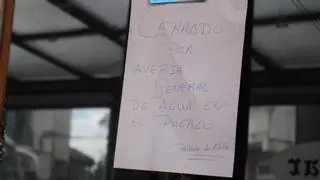 CERRADO
POR
AVERIA
GENERAL
DE AGUA EN
EL PUEBLO